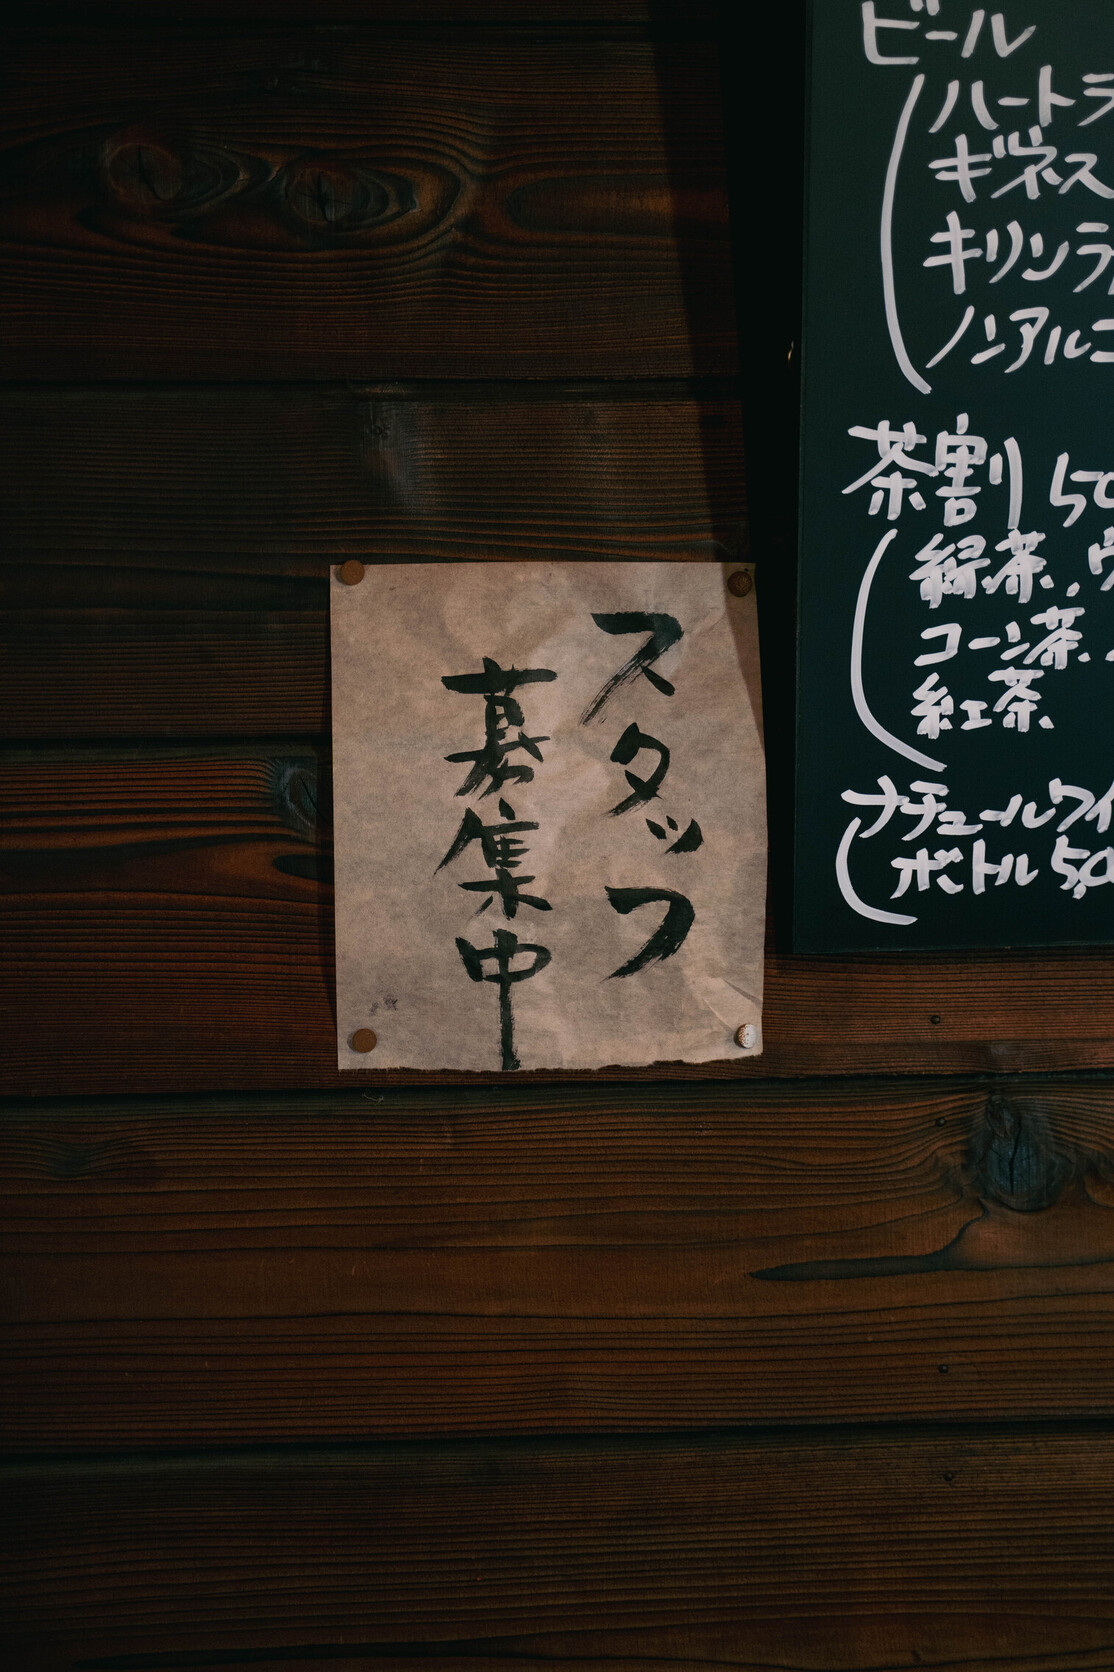 スタッフ
募集中
ビール
ハート
ギネス
キリン
ノンアルコ
茶割 50
緑茶、ウ
コーン茶、
紅茶、
ナチュールワイ
ボトル 5,0